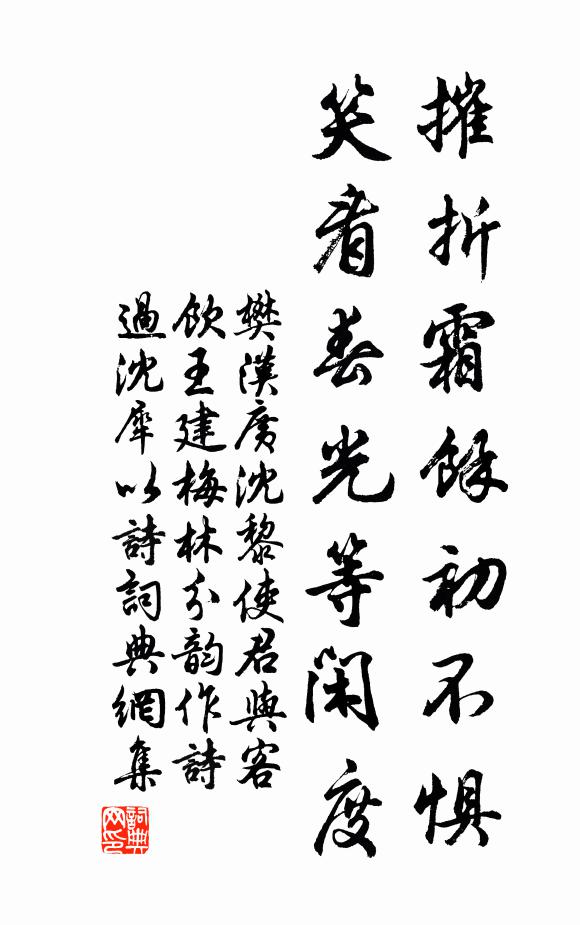 摧折霜餘初不惧
笑看春光等闲度
樊漢廣沈黎使君與客
飲王建梅林分韵作詩
過沈犀以詩詞典網集
詞典网印